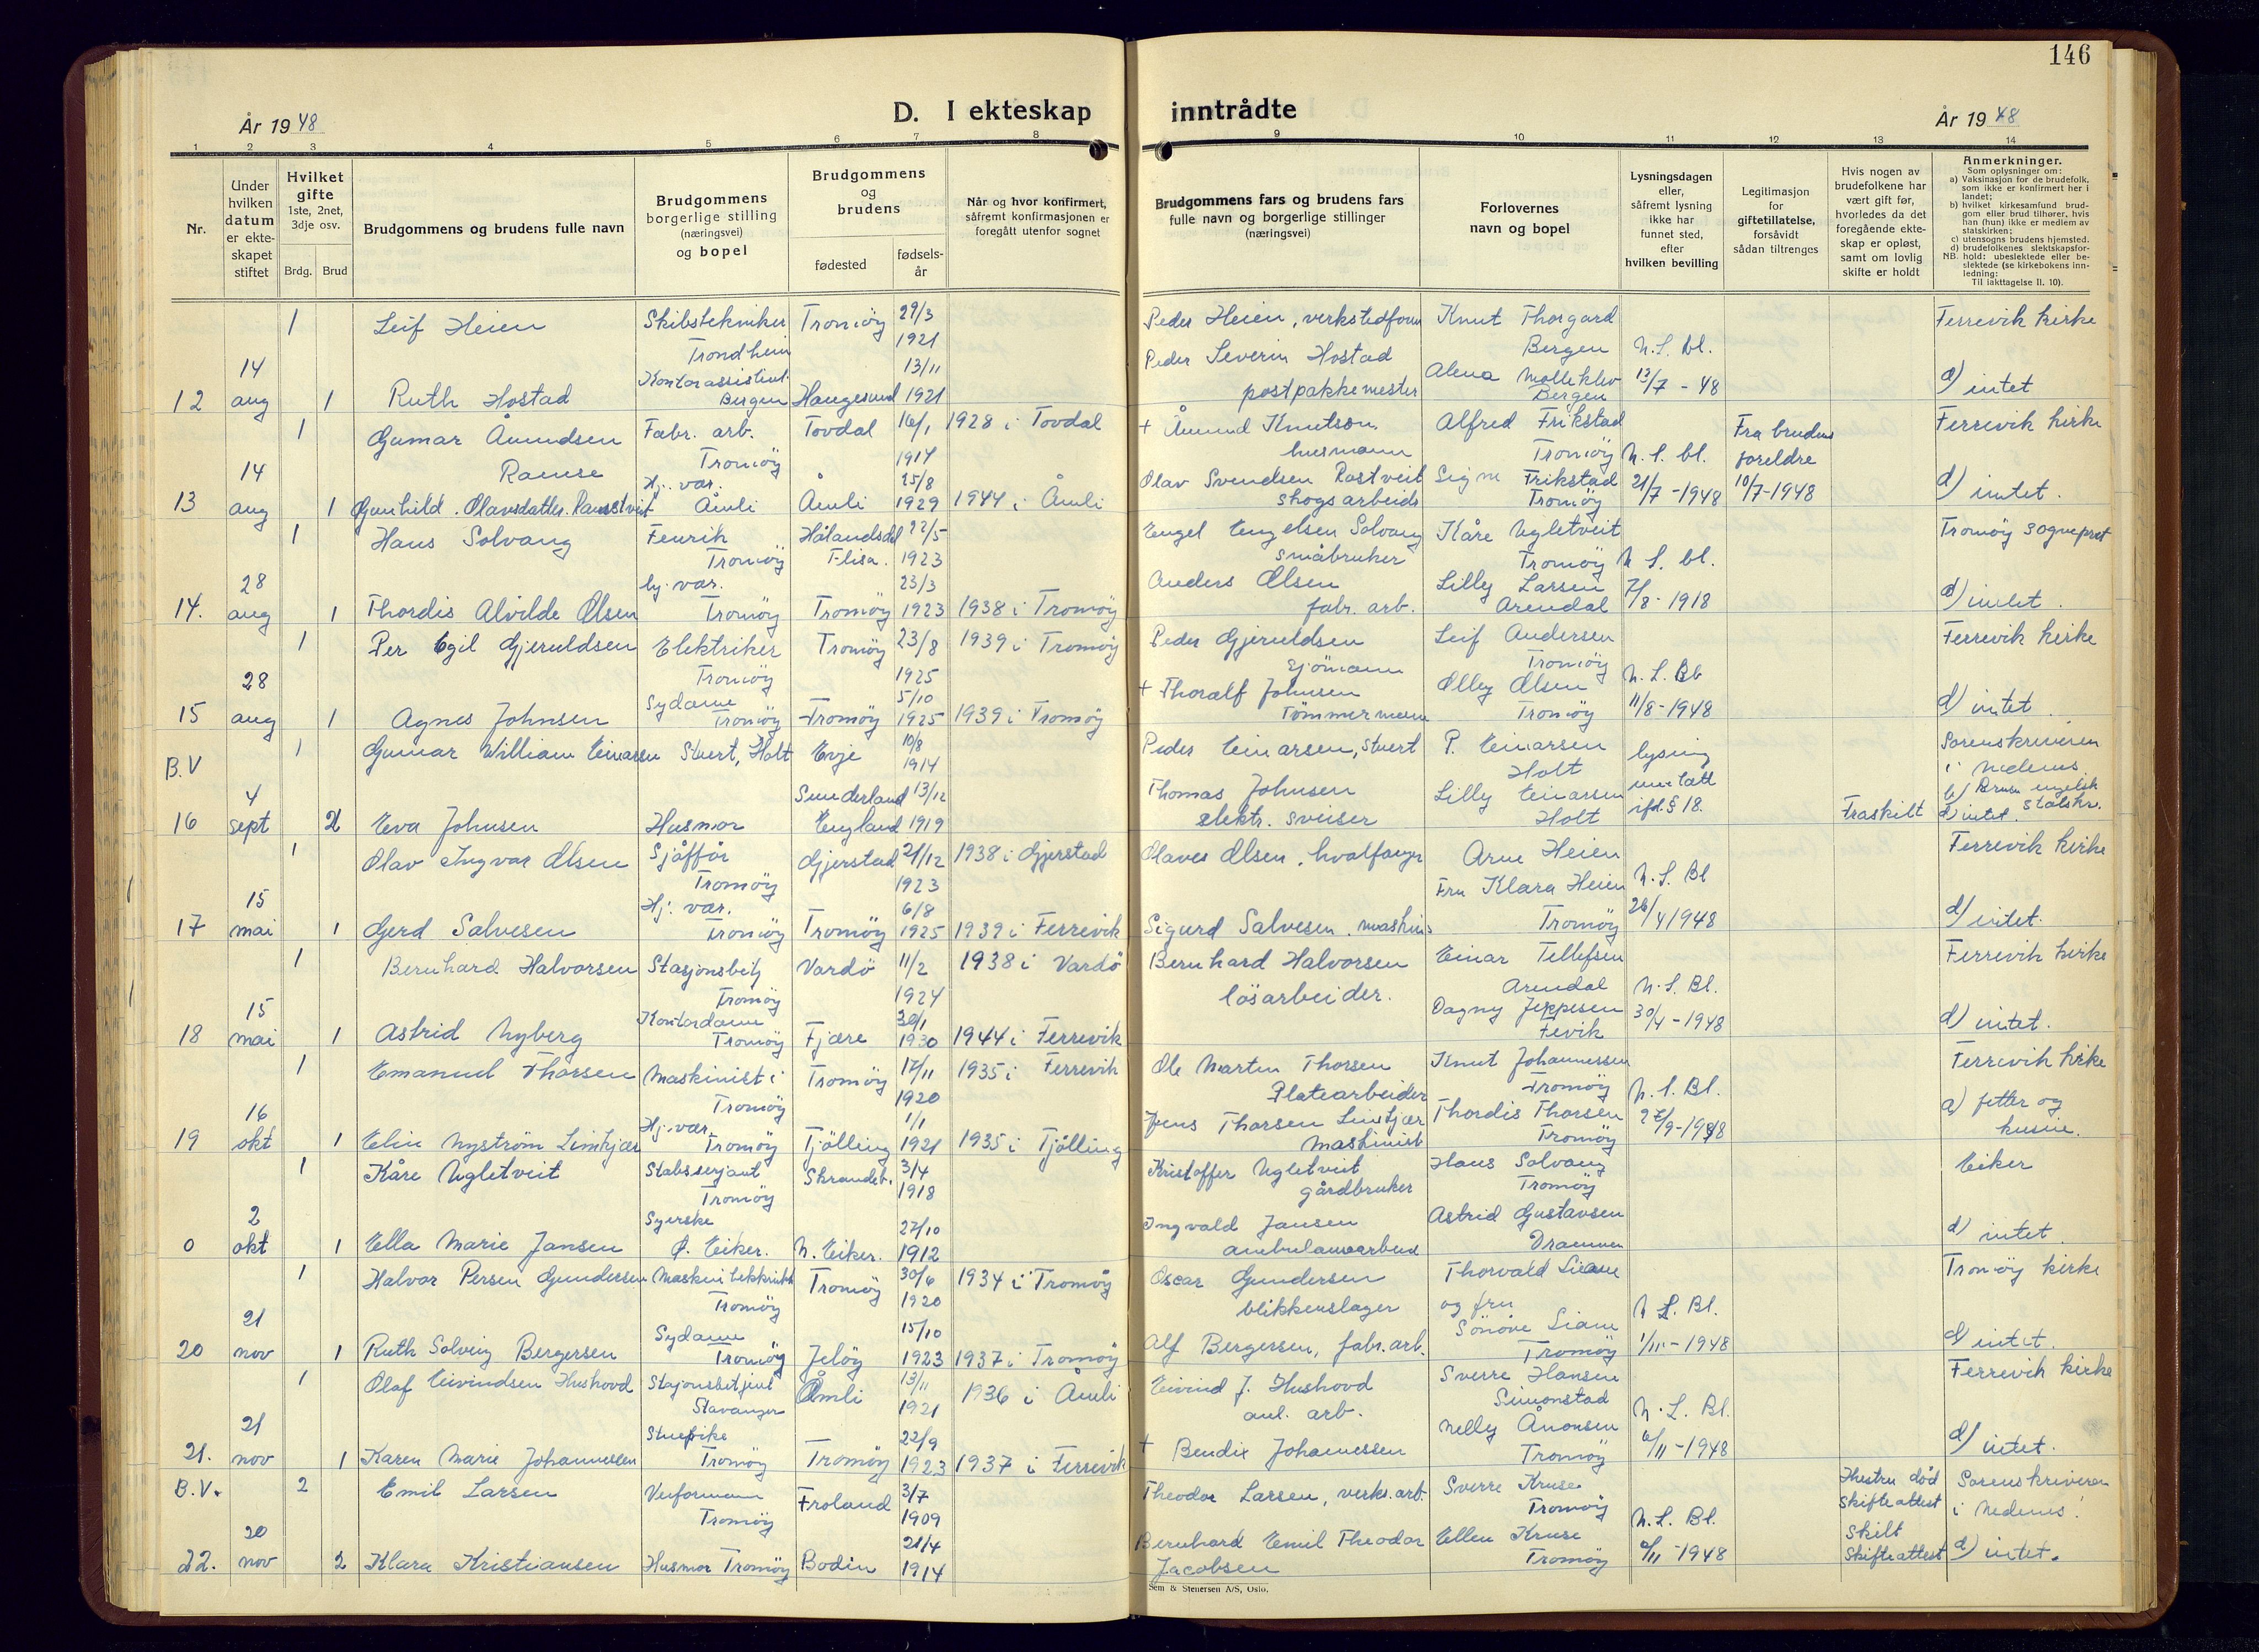 146
År 1948
D. I ekteskap
inntrådte
År 1948
1 2 3 4 5 6 7 8 9 10 11 12 13 14
Nr.
Under hvilken datum er ekteskapet stiftet
Hvilket gifte
1ste, 2net, 3dje osv.
Brdg. Brud
Brudgommens og brudens fulle navn
Brudgommens borgerlige stilling (næringsvei) og bopel
Brudgommens og brudens
fødested
fødselsår
Når og hvor konfirmert, såfremt konfirmasjonen er foregått utenfor sognet
Brudgommens fars og brudens fars fulle navn og borgerlige stillinger (næringsvei)
Forlovernes navn og bopel
Lysningsdagen eller, såfremt lysning ikke har funnet sted, efter hvilken bevilling
Legitimasjon for giftetillatelse, forsåvidt sådan tiltrenges
Hvis nogen av brudefolkene har vært gift før, hvorledes da det foregående ekteskap er opløst, samt om lovlig skifte er holdt
Anmerkninger.
Som oplysninger om:
a) Vaksinasjon for de brudefolk, som ikke er konfirmert her i landet;
b) hvilket kirkesamfund brudgom eller brud tilhører, hvis han (hun) ikke er medlem av statskirken;
c) utensogns brudens hjemsted.
d) brudefolkenes slektskapsforhold: ubeslektede eller beslektede (se kirkebokens innledning:
NB. Til iakttagelse II. 10).
1 Leif Heien Skibstekniker Tromöy 29/3 Peder Heien, verkstedform Knut Thorgard Ferrevik kirke
Trondheim 1921 Bergen N.S. bl.
14 Kontorassistent 13/11 Peder Severin Hostad Alena Molleklev 13/7 - 48
12 aug 1 Ruth Hostad Bergen Haugesund 1921 postpakkemester Bergen d) intet
1 Gunnar Åmundsen Fabr. arb. Tovdal 16/1 1928 i Tovdal + Åmund Knutson Alfred Frikstad Fra brudens Ferrevik kirke
Ramse Tromöy 1914 husmann Tromöy N.S. bl. foreldre
14 Hj. var. 25/8 Olav Svendsen Rostveit Signe Frikstad 21/7-1948 10/7-1948
13 aug 1 Gunhild Olavsdatter Åmli Åmli 1929 1944 i Åmli skogsarbeider Tromöy d) intet.
1 Hans Solvang Fenrik Hålandsdal 22/5 Engel Engelsen Solvang Kåre Ugletveit Tromöy sogneprest
Tromöy Elisa. 1923 småbruker Tromöy N.S. bl.
28 hj. var. 23/3 Anders Olsen Lilly Larsen 7/8-1918
14. aug 1 Thordis Alvilde Olsen Tromöy Tromöy 1923 1938 i Tromöy fabr. arb. Arendal d) intet.
1 Per Egil Gjeruldsen Elektriker Tromöy 23/8 1939 i Tromöy Peder Gjeruldsen Leif Andersen Ferrevik kirke
Tromöy 1925 sjömann Tromöy N.L. Bl
28 Sydame 5/10 + Thoralf Johnsen Olly Olsen 11/8-1948
15 aug 1 Agnes Johnsen Tromöy Tromöy 1925 1939 i Tromöy Tömmermann Tromöy d) intet.
B.V 1 Gunnar William Einarsen Stuert, Holt Evje 10/8 1914 Peder Einarsen, Stuert P. Einarsen lysing Sorenskriveren
Holt unnlatt i Nedenes
4 Sunderland 13/12 Thomas Johnsen Lilly Einarsen ifd. § 18. b) Brud engelsk
16 sept 2 Eva Johnsen Husmor England 1919 elektr. sveiser Holt Fraskilt d) intet. statskr.
1 Olav Ingvar Olsen Sjåfför Gjerstad 21/12 1938 i Gjerstad Olaves Olsen, hvalfanger Arne Heien Ferrevik kirke
Tromöy 1923 Fru Klara Heien N.S. Bl
15 Hj. var. 6/8 26/4 1948
17 mai 1 Gerd Salvesen Tromöy Tromöy 1925 1939 i Ferrevik Sigurd Salvesen, maskinis Tromöy d) intet.
1 Bernhard Halvorsen Stasjonsbetj Vardö 11/2 1938 i Vardö Bernhard Halvorsen Einar Tellefsen Ferrevik kirke
Tromöy 1924 lösarbeider. Arendal N.S. Bl.
15 Kontordame 30/1 Dagny Jeppesen 30/4-1948
18 mai 1 Astrid Nyberg Tromöy Fjære 1930 1944 i Ferrevik Fevik d) intet.
1 Emanuel Thorsen Maskinist i Tromöy 17/11 1935 i Ferrevik Ole Martin Thorsen Knut Johannessen Ferrevik kirke
Tromöy 1920 Platearbeider Tromöy N.S. Bl.
16 Hj. var. 1/1 Jens Thorsen Limkjær Thordis Thorsen 27/9-1948 d) fetter og
19 okt 1 Elin Nyström Limkjær Tromöy Tjölling 1921 1935 i Tjölling Maskinist Tromöy kusine.
1 Kåre Ugletveit Stabsserjant 3/4 Kristoffer Ugletveit Hans Solvang Eiker
Tromöy 1918 gårdbruker Tromöy
2 Syerske 27/10 Ingvald Jansen Astrid Gustavsen
0 okt 1 Ella Marie Jansen Ø. Eiker. N. Eiker. 1912 Drammen d) intet.
1 Halvor Persen Gundersen Tromöy 30/6 1934 i Tromöy Oscar Gundersen Thorvald Liane Tromöy kirke
Tromöy 1920 blikkenslager og fru N.L. Bl.
21 Sydame 15/10 Sönöve Liane 1/11-1948
20 nov 1 Ruth Solveig Bergersen Tromöy Jelöy 1923 1937 i Tromöy Alf Bergersen, fabr. arb. Tromöy d) intet.
1 Olaf Eivindsen Hushovd Stasjonsbetjent Åmli 13/11 1936 i Åmli Eivind J. Hushovd Sverre Hansen Ferrevik kirke
Stavanger 1921 anl. arb. Simonstad N.L. Bl.
21 Stuepike 22/9 Nelly Ånonsen 6/11-1948
21. nov 1 Karen Marie Johannessen Tromöy Tromöy 1923 1937 i Ferrevik + Bendix Johannessen Tromöy d) intet.
B.V. 2 Emil Larsen Verformann Froland 3/7 Theodor Larsen, verks. arb. Sverre Kruse Hustru död Sorenskriveren
Tromöy 1909 Tromöy N.L. Bl. Skifteattest i Nedenes!
20 21/4 Bernhard Emil Theodor Ellen Kruse Skilt
22. nov 2 Klara Kristiansen Husmor Tromöy Bodin 1914 Jacobsen Tromöy Skifteattest d) intet.
Sem & Stenersen A/S, Oslo.